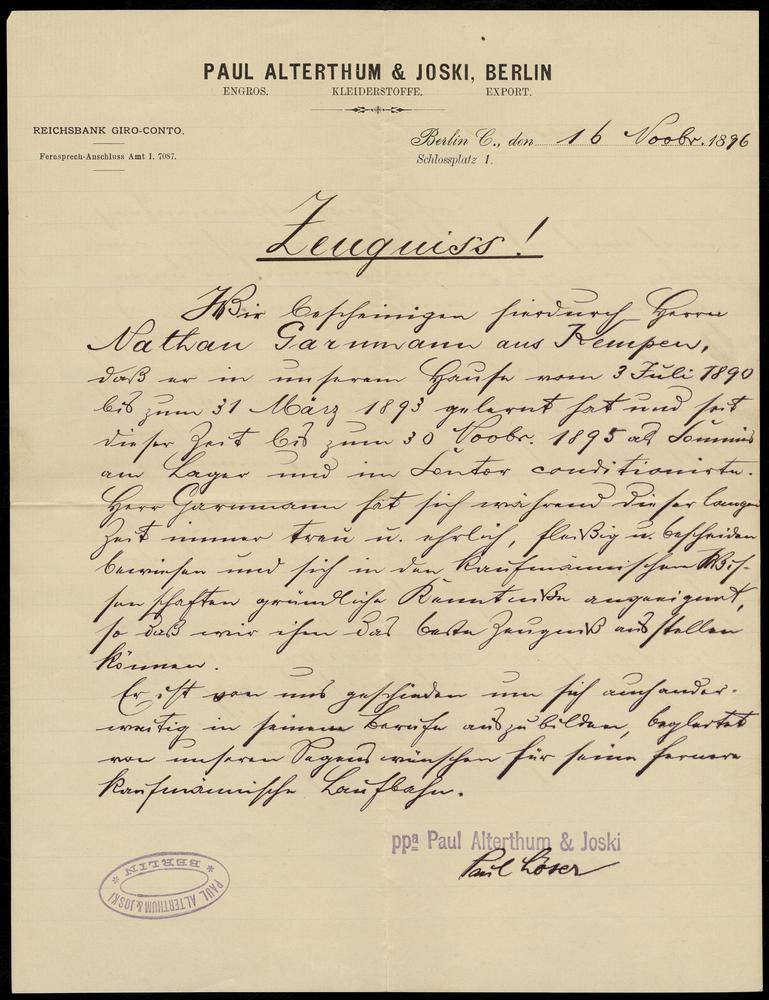 PAUL ALTERTHUM & JOSKI, BERLIN
ENGROS. KLEIDERSTOFFE. EXPORT.
REICHSBANK GIRO-CONTO.
Fernsprech-Anschluss Amt I. 7087.
Berlin C., den 16 Novbr. 1896
Schlossplatz 1.
Zeugniss!
Wir bescheinigen hierdurch Herrn
Nathan Garnmann aus Kempen,
daß er in unserem Hause vom 3 Juli 1890
bis zum 31 März 1893 gelernt hat und seit
dieser Zeit bis zum 30 Novbr. 1895 als Commis
am Lager und im Contor conditionirte.
Herr Garnmann hat sich während dieser langen
Zeit immer treu u. ehrlich, fleißig u. bescheiden
bewiesen und sich in den kaufmännischen Wis-
senschaften gründliche Kenntniße angeeignet,
so daß wir ihm das beste Zeugniß ausstellen
können.
Er ist von uns geschieden um sich auch ander-
weitig in seinem Berufe auszubilden, begleitet
von unseren Segenswünschen für seine fernere
kaufmännische Laufbahn.
ppa Paul Alterthum & Joski
Paul Löser
PAUL ALTERTHUM & JOSKI
* BERLIN *